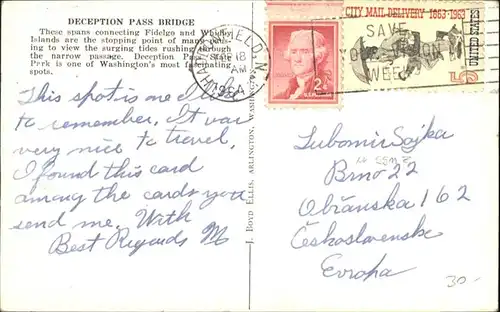 DECEPTION PASS BRIDGE
These spans connecting Fidalgo and Whidby
Islands are the stopping point of many
to view the surging tides rushing through
the narrow passage. Deception Pass State
Park is one of Washington's most fascinating
spots.
This spot is one I
to remember. It was
very nice to travel.
I found this card
among the cards you
send me. With
Best Regards M
J. BOYD ELLIS, ARLINGTON, WASHINGTON
18
AM
1964
2¢
CITY MAIL DELIVERY 1863-1963
UNITED STATES
5¢
SAVE
YOUR VISION
WEEK
Lubomir Sojka
Brno 22
Obřanska 162
Československe
Evropa
30-